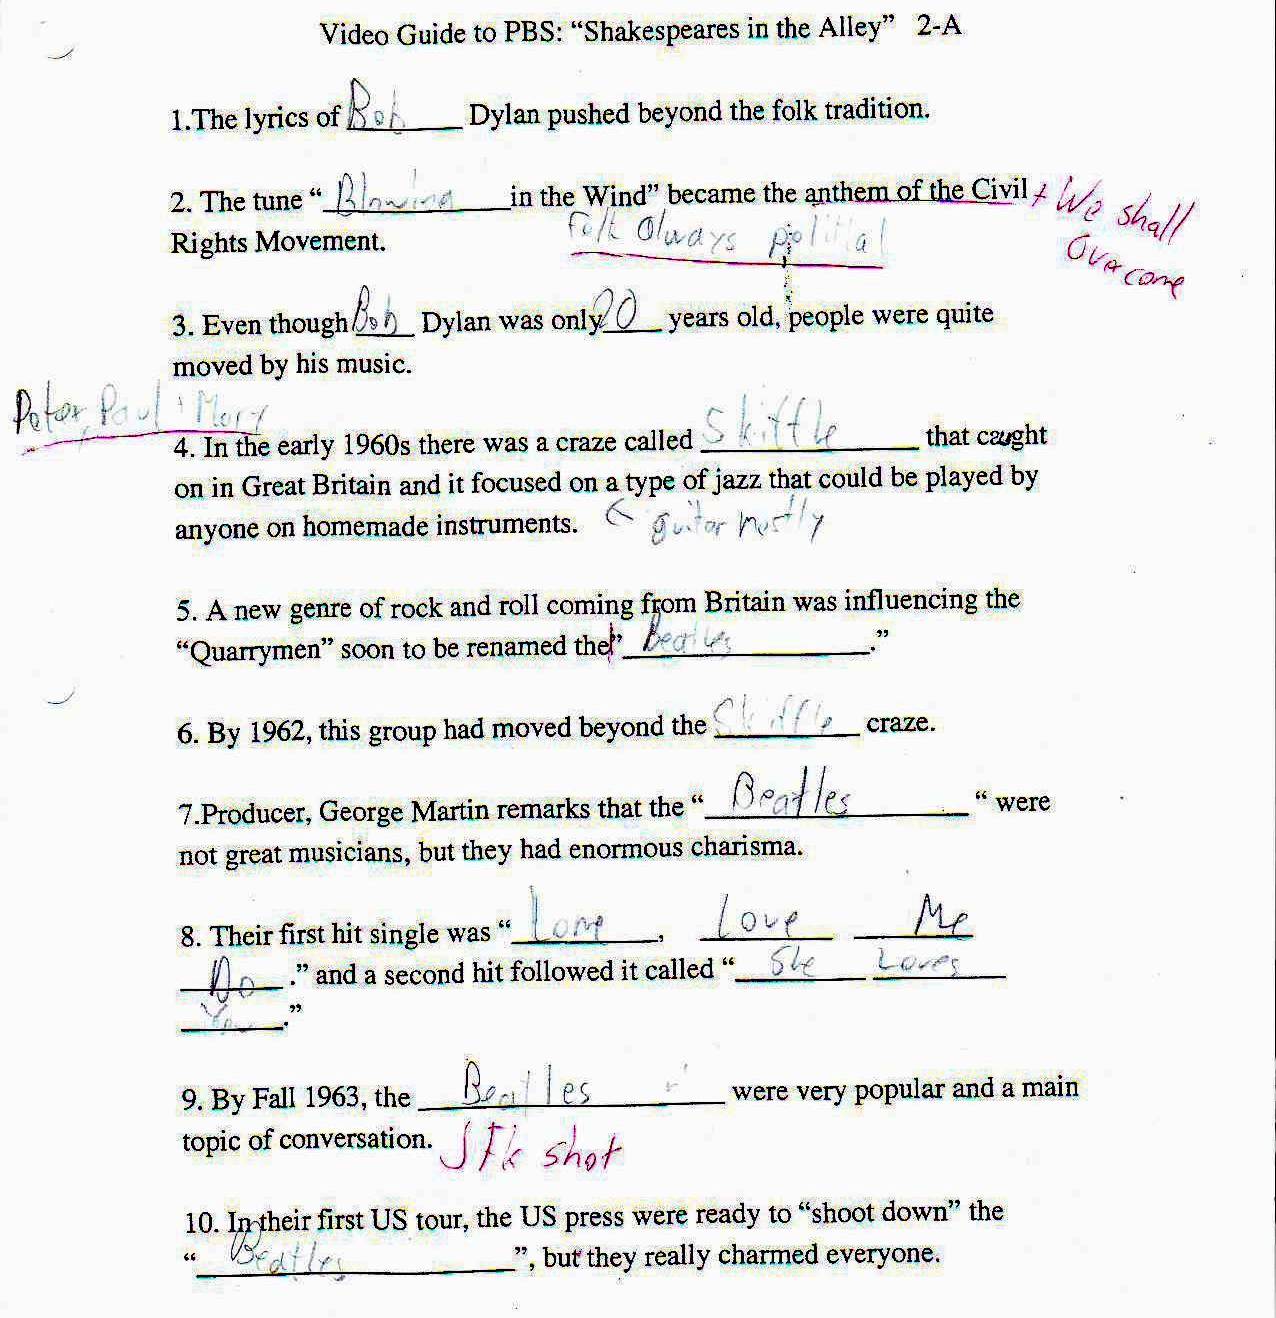 Video Guide to PBS: “Shakespeares in the Alley” 2-A
1.The lyrics of Bob Dylan pushed beyond the folk tradition.
2. The tune “ Blowing in the Wind” became the anthem of the Civil + We shall
Rights Movement. Folk always political overcome
3. Even though Bob Dylan was only 20 years old, people were quite
moved by his music.
Peter, Paul + Mary
4. In the early 1960s there was a craze called Skiffle that caught
on in Great Britain and it focused on a type of jazz that could be played by
anyone on homemade instruments. ← guitar mostly
5. A new genre of rock and roll coming from Britain was influencing the
“Quarrymen” soon to be renamed the” Beatles .”
6. By 1962, this group had moved beyond the Skiffle craze.
7.Producer, George Martin remarks that the “ Beatles “ were
not great musicians, but they had enormous charisma.
8. Their first hit single was “ Love , Love Me
Do .” and a second hit followed it called “ She Loves
You .”
9. By Fall 1963, the Beatles were very popular and a main
topic of conversation. JFK shot
10. In their first US tour, the US press were ready to “shoot down” the
“ Beatles ”, but they really charmed everyone.